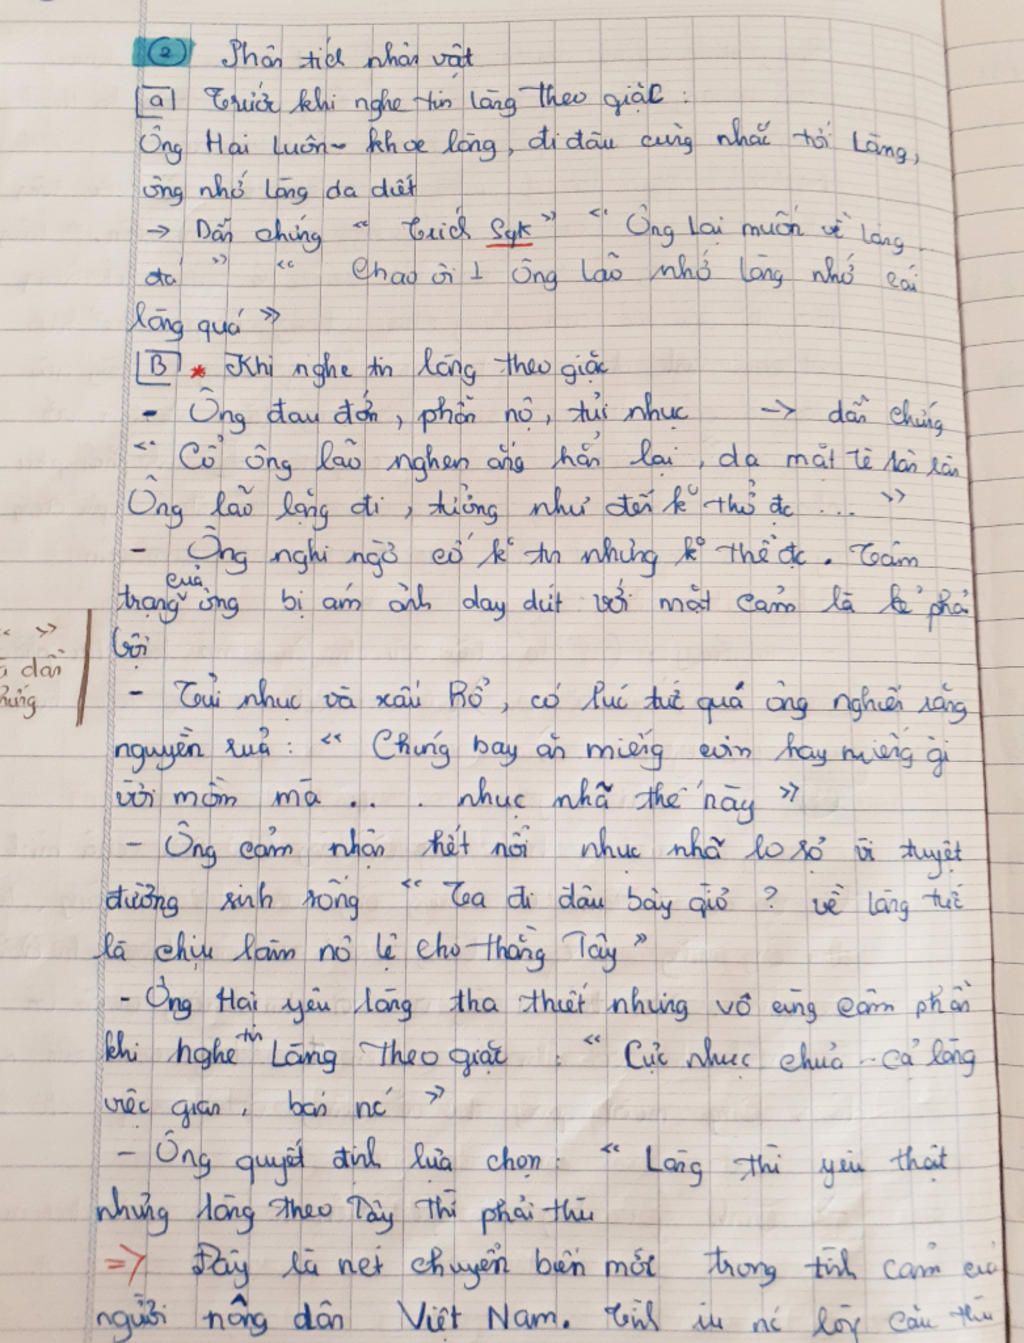 ② Phân tích nhân vật
a Trước khi nghe tin làng theo giặc :
Ông Hai luôn khoe làng, đi đâu cũng nhắc tới làng,
ông nhớ làng da diết
→ Dẫn chứng " Trích Sgk " " Ông lại muốn về làng
" " Chao ôi ! Ông lão nhớ làng nhớ cái
làng quá "
B * Khi nghe tin làng theo giặc
- Ông đau đớn, phẫn nộ, tủi nhục → dẫn chứng
" Cổ ông lão nghẹn ắng hẳn lại, da mặt tê rân rân
Ông lão lặng đi, tưởng như đến k° thở đc ... "
- Ông nghi ngờ cố k° tin nhưng k° thể đc. Tâm
trạng của ông bị ám ảnh day dứt với mặc cảm là kẻ phản
bội
" "
dẫn
chứng
- Tủi nhục và xấu hổ, có lúc tức quá ông nghiến răng
nguyền rủa : " Chúng bay ăn miếng cơm hay miếng gì
vời mồm mà ... . nhục nhã thế này "
- Ông cảm nhận hết nỗi nhục nhã lo sợ vì tuyệt
đường sinh sống " Ta đi đâu bây giờ ? về làng tức
là chịu làm nô lệ cho thằng Tây "
- Ông Hai yêu làng tha thiết nhưng vô cùng căm phẫn
khi nghe tin Làng Theo giặc : " Cực nhục chưa - cả làng
việc gian, bán nc "
- Ông quyết định lựa chọn : " Làng thì yêu thật
nhưng làng theo Tây thì phải thù
⇒ Đây là nét chuyển biến mới trong tình cảm của
người nông dân Việt Nam. Tình nc